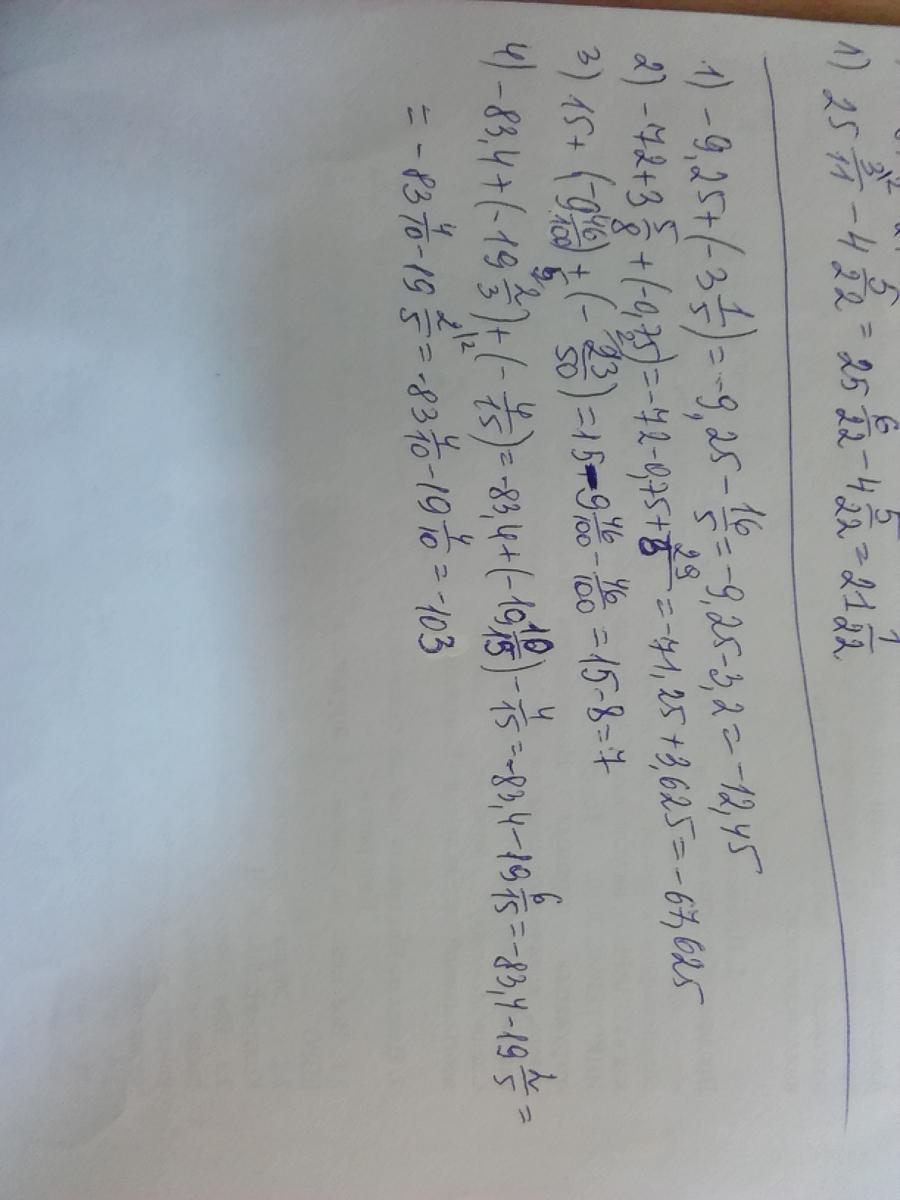 1) 25 3/11 |2 - 4 5/22 = 25 6/22 - 4 5/22 = 21 1/22
1) -9,25 + (-3 1/5) = -9,25 - 16/5 = -9,25 - 3,2 = -12,45
2) -72 + 3 5/8 + (-0,75) = -72 - 0,75 + 29/8 = -71,25 + 3,625 = -67,625
3) 15 + (-9 46/100) + (- 23/50) = 15 - 9 46/100 - 46/100 = 15 - 8 = 7
4) -83,4 + (-19 2/3) + (- 4/15) = -83,4 + (-19 10/15) - 4/15 = -83,4 - 19 6/15 = -83,4 - 19 2/5 =
= -83 4/10 - 19 2/5 |2 = -83 4/10 - 19 4/10 = -103